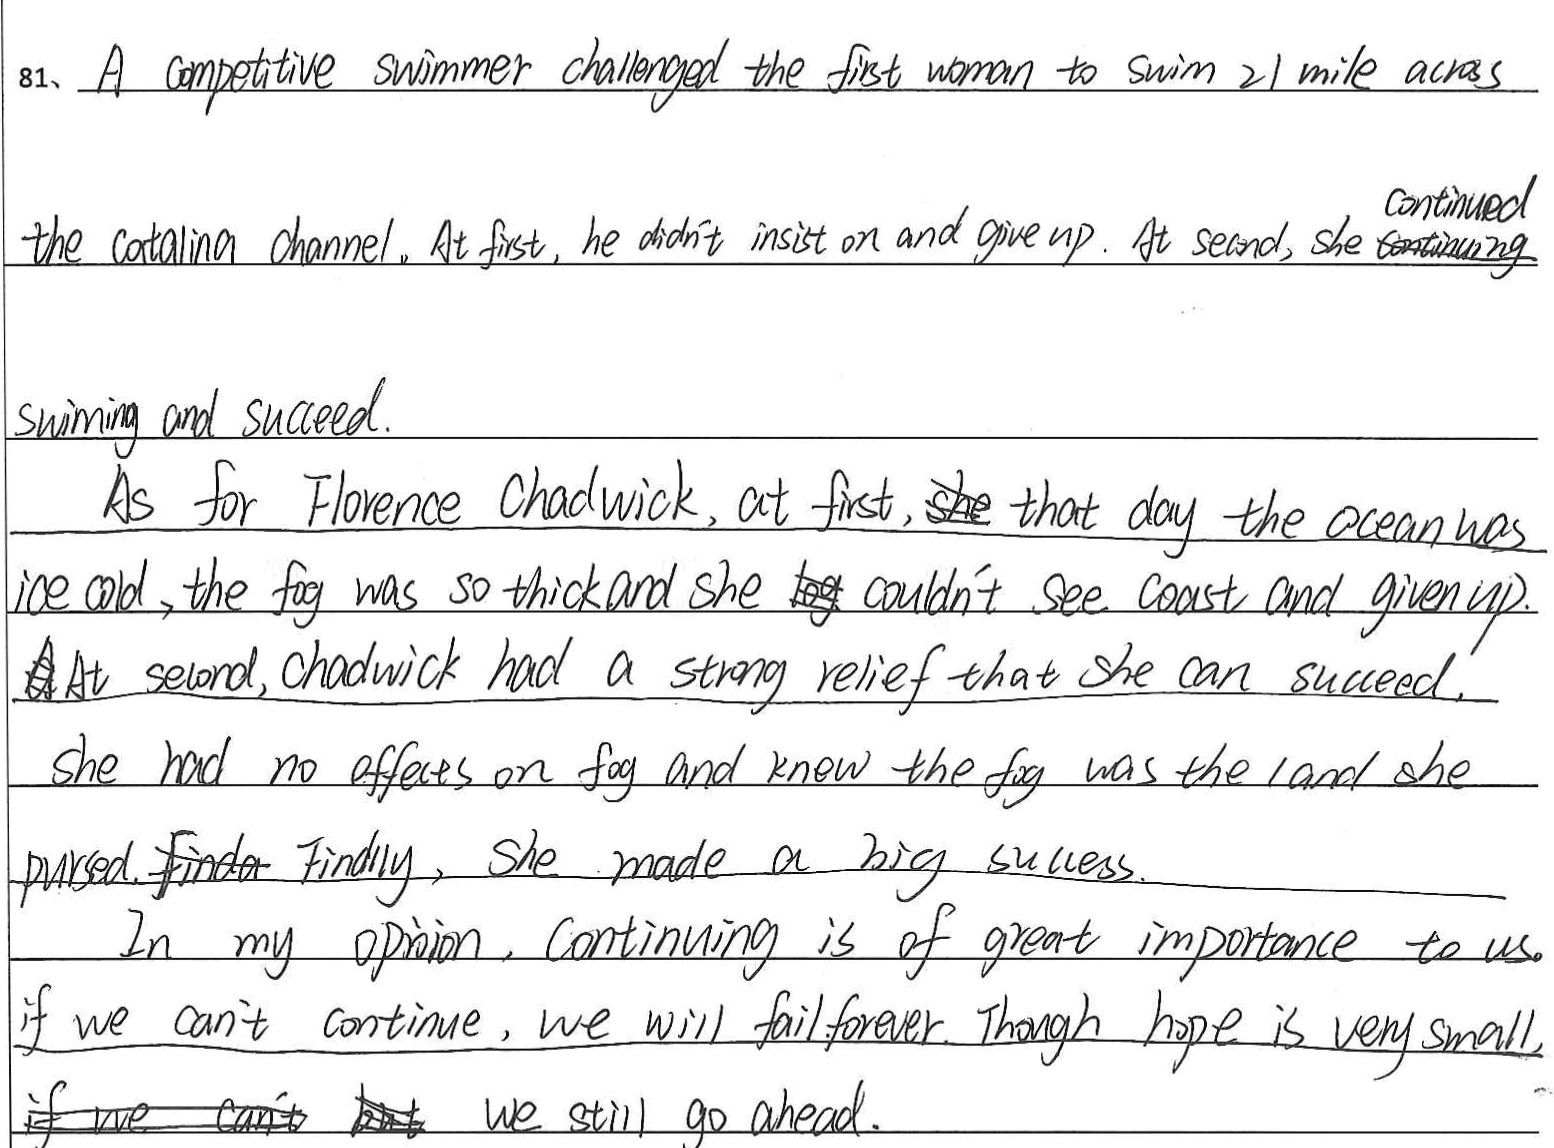 81、 A competitive swimmer challenged the first woman to swim 21 mile across
the catalina channel. At first, he didn't insist on and give up. At second, she continued
swiming and succeed.
As for Florence Chadwick, at first, that day the ocean was
ice cold, the fog was so thick and she couldn't see coast and given up.
At second, Chadwick had a strong relief that she can succeed.
she had no effects on fog and knew the fog was the land she
pursed. Finally, she made a big success.
In my opinion, Continuing is of great importance to us.
if we can't continue, we will fail forever. Though hope is very small,
we still go ahead.